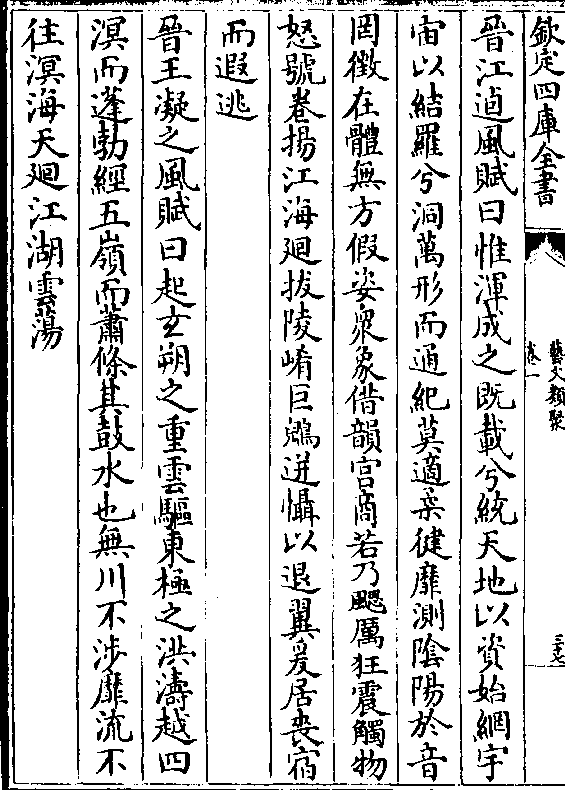 欽定四庫全書
藝文類聚
卷一
三十七
晉江逌風賦曰惟渾成之既載兮統天地以資始網宇
宙以結羅兮洞萬形而通紀莫適来健靡測陰陽於音
罔徵在體無方假姿衆象借韻宮商若乃飂厲狂震觸物
怒號卷揚江海廻拔陵崤巨鷁迸懾以退翼爰居喪宿
而遐逃
晉王凝之風賦曰起玄朔之重雲驅東極之洪濤越四
溟而蓬勃經五嶺而蕭條其鼓水也無川不涉靡流不
往溟海天廻江湖雲蕩